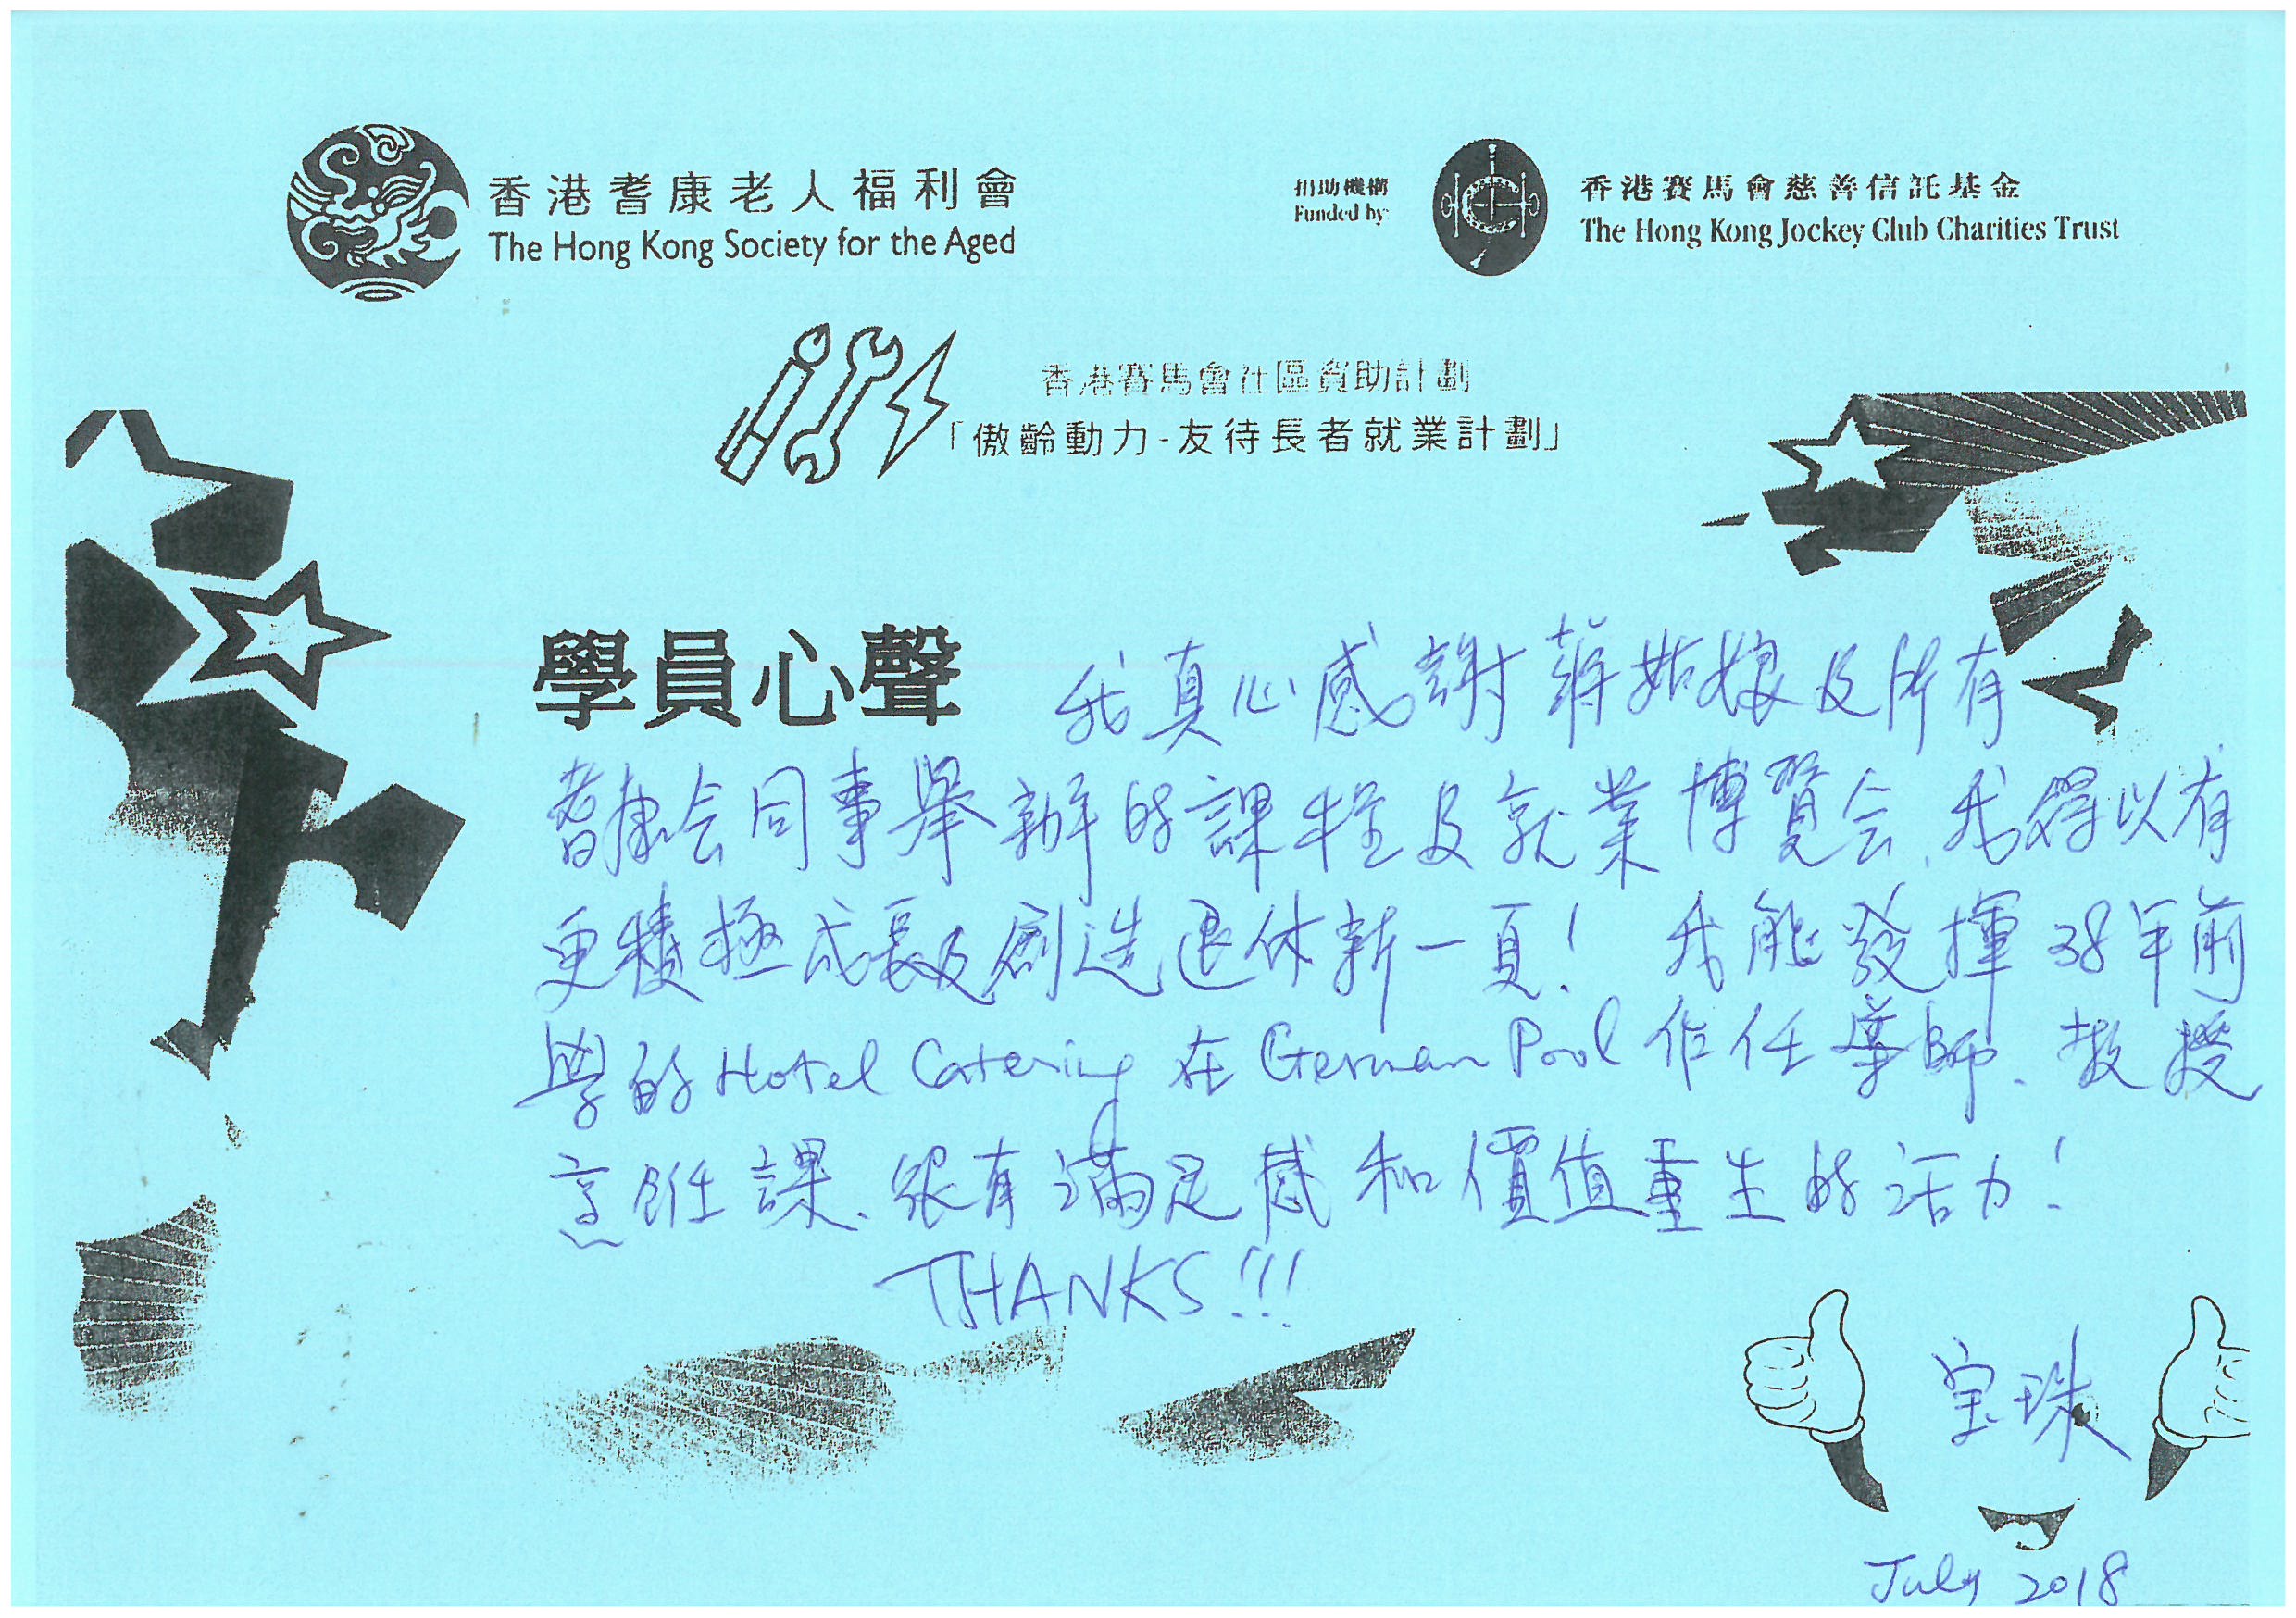 香港耆康老人福利會
The Hong Kong Society for the Aged
捐助機構
Funded by:
香港賽馬會慈善信託基金
The Hong Kong Jockey Club Charities Trust
香港賽馬會社區資助計劃
「傲齡動力-友待長者就業計劃」
學員心聲
我真心感謝蔣姑娘及所有
耆康会同事舉辦的課程及就業博覽会,我得以有
更積極成長及創造退休新一頁! 我能發揮38年前
學的Hotel Catering 在German Pool作任導師、教授
烹飪課、很有滿足感和價值重生的活力!
THANKS!!!
宝珠
July 2018